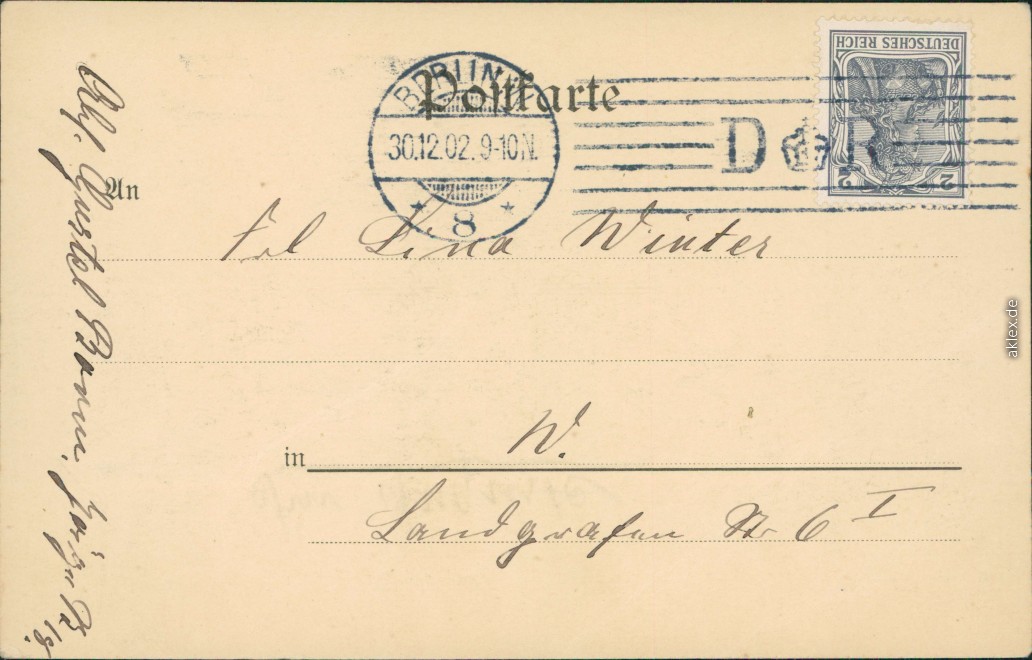 Postkarte
BERLIN.W.
30.12.02. 9-10N.
* 8 *
D R
DEUTSCHES REICH
2 2
An
Frl Lina Winter
in W.
Landgrafen Str 6 I
Abs. Gustel Bonn,
aklex.de